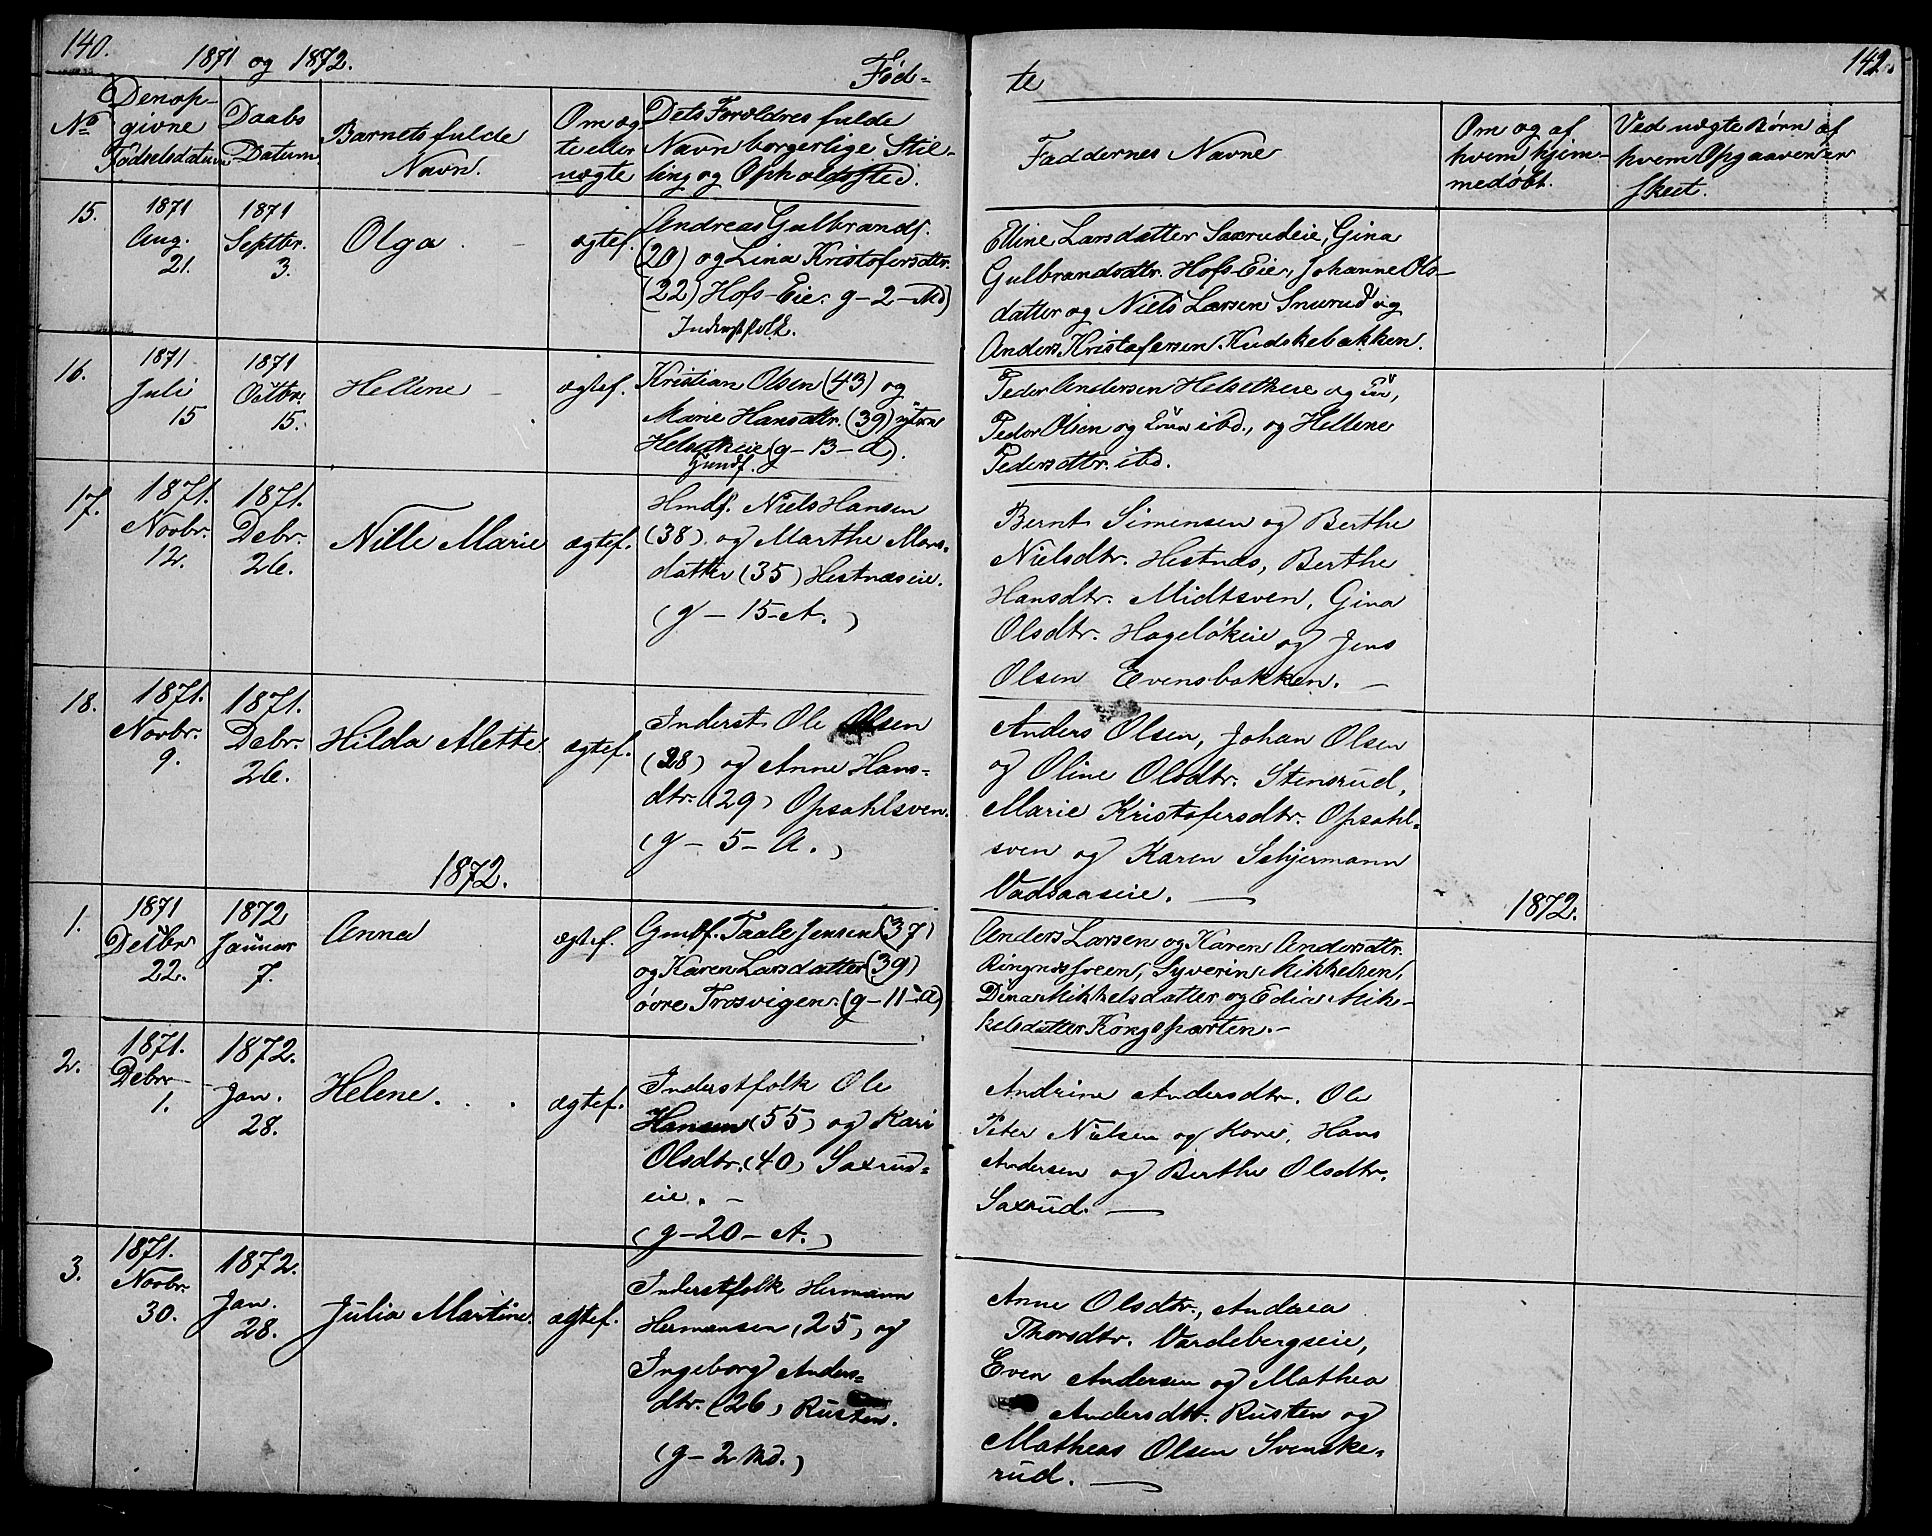 140.
1871 og 1872.
Fød-
te
142.
No
Den op-
givne
Fødselsdatum
Daabs
Datum
Barnets fulde
Navn.
Om æg-
te eller
uægte
Dets Forældres fulde
Navn borgerlige Stil-
ling og Opholdssted.
Faddernes Navne
Om og af
hvem hjem-
medøbt.
Ved uægte Børn af
hvem Opgaaven er
skeet.
15.
1871
Aug.
21.
1871
Septbr.
3.
Olga
ægtef.
Andreas Gulbrands.
(20) og Lina Kristofersdtr.
(22) Hofs-Eie. g-2-Md)
Inderstfolk.
Elline Larsdatter Saxrudeie, Gina
Gulbrandsdtr. Hofs-Eie, Johanne Ols-
datter og Niels Larsen Snurud og
Anders Kristofersen Kudskebakken.
16.
1871
Juli
15
1871
Octbr.
15.
Hellene
ægtef.
Kristian Olsen (43) og
Marie Hansdtr. (39)
Helsetheie (g-13-A).
Peder Andersen Helsetheie og
Peder Olsen og Kone ibd., og Hellene
Pedersdtr. ibd.
17.
1871.
Novbr.
12.
1871.
Debr.
26.
Nille Marie
ægtef.
Hmdf. Niels Hansen
(38) og Marthe Mons-
datter (35) Hestnæseie.
(g-15-A.)
Bernt Simensen og Berthe
Nielsdtr. Hestnæs, Berthe
Hansdtr. Midtsven, Gina
Olsdtr. Hageløkeie og Jens
Olsen Evensbakken.
18.
1871.
Novbr.
9.
1871.
Debr.
26.
Hilda Alette
ægtef.
Inderst Ole Olsen
(28) og Anne Hans-
dtr. (29) Opsahlsven.
(g-5-A.)
Anders Olsen, Johan Olsen
og Oline Olsdtr. Stensrud,
Marie Kristofersdtr. Opsahl-
sven og Karen Schjermann
Vadsaaseie.
1872.
1872.
1.
1871
Decbr
22.
1872
Januar
7.
Anna
ægtef.
Gmdf. Taale Jensen (37)
og Karen Larsdatter (39)
øvre Trosvigen. (g-11-A)
Anders Larsen og Karen Andersdtr.
Ringnæssveen, Syverin Mikkelsen,
Dina Mikkelsdatter og Edia Mik-
kelsdatter Kongsparten.
2.
1871.
Debr
1.
1872.
Jan.
28.
Helene.
ægtef.
Inderstfolk Ole
Hansen (55) og Kari
Olsdtr. (40) Saxrud-
eie.
(g-20-A.)
Andrine Andersdtr. Ole
Peter Nielsen og Kone, Hans
Andersen og Berthe Olsdtr.
Saxrud.
3.
1871.
Novbr.
30.
1872.
Jan.
28.
Julia Martine.
ægtef.
Inderstfolk Hermann
Hermansen (25) og
Ingeborg Anders-
dtr. (26) Rusten.
(g-2 Md.)
Anne Olsdtr., Andrea
Thorsdtr. Vardebergseie,
Even Andersen og Mathea
Andersdtr. Rusten og
Matheas Olsen Svenske-
rud.